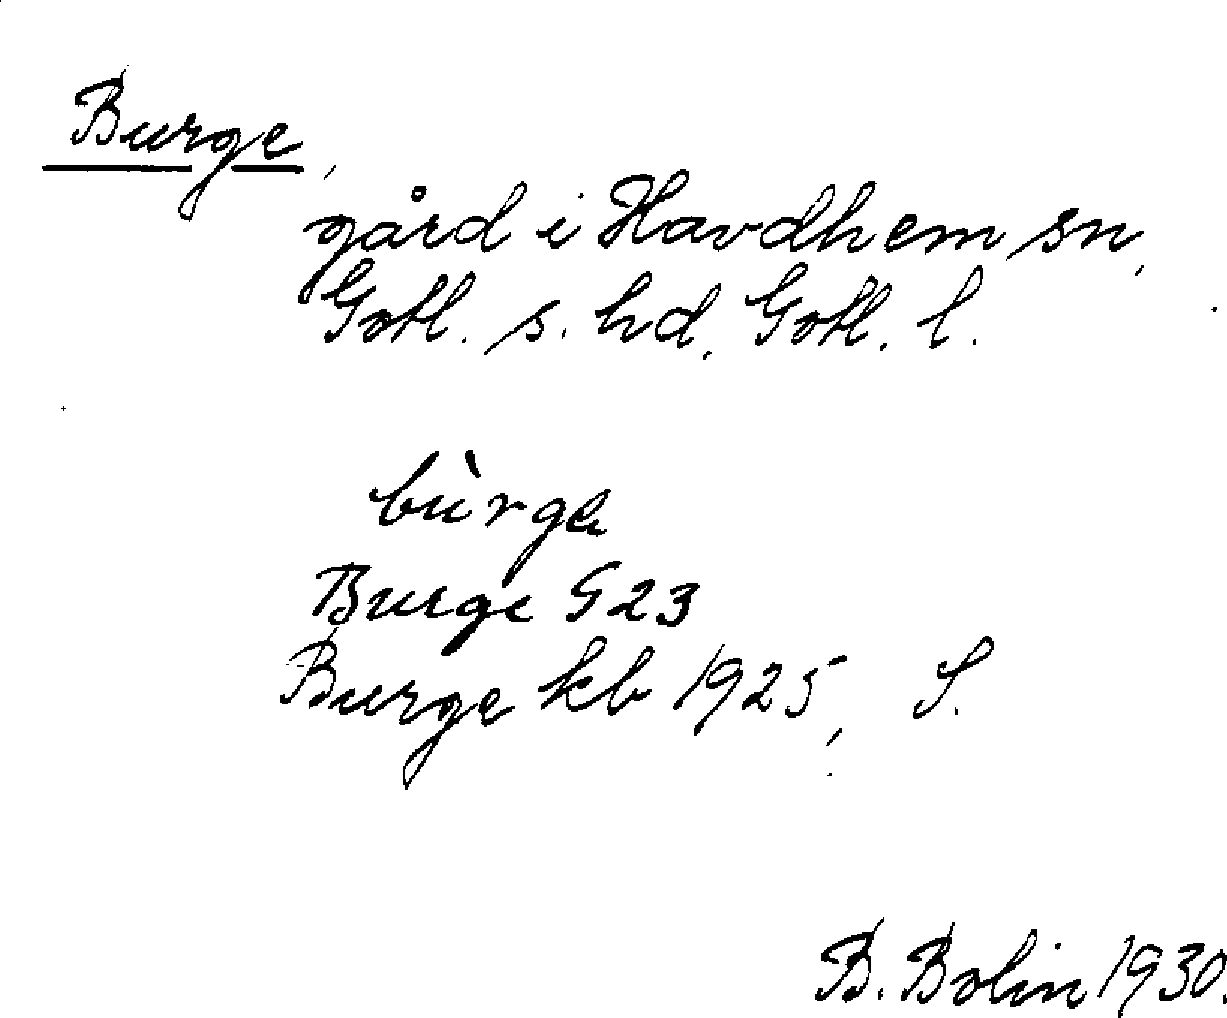 Burge,
gård i Havdhem sn,
Gotl. s. hd, Gotl. l.
bùrgα
Burge G23
Burge kb 1925, S.
B. Bolin 1930.